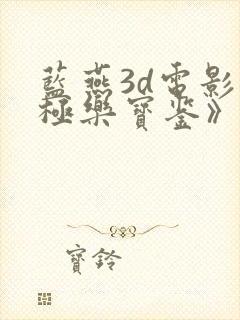 藍燕3d電影
極樂寶鉴》
寶鈴